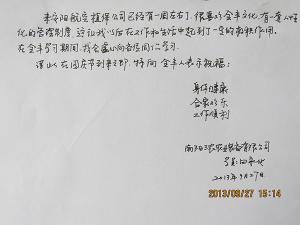 来安阳航空植保公司已经有一周左右了,很喜欢全丰文化,有一套人性
化的管理制度,这让我以后在工作和生活中起到了一定的积极作用。
在全丰学习期间,我会虚心向各位同仁学习。
谨此在国庆节到来之即,特向全丰人表示祝福:
身体健康
合家欢乐
工作顺利
南阳农业装备有限公司
2013年9月27日
2013/09/27 15:14